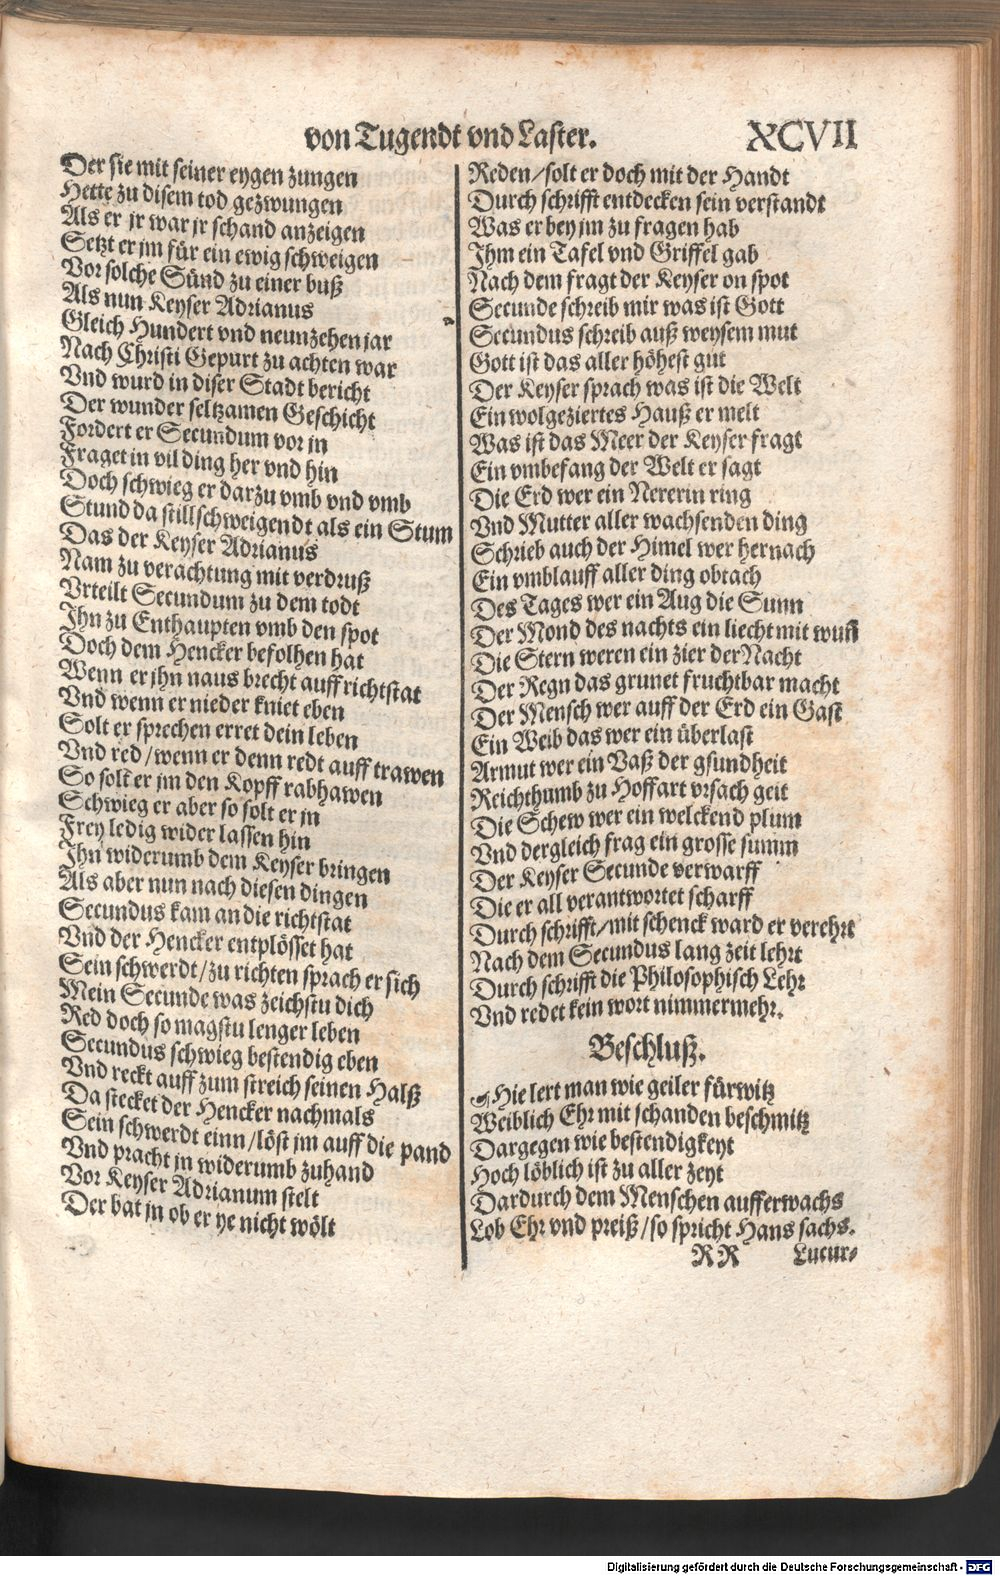 von Tugendt vnd Laster. XCVII
Der sie mit seiner eygen zungen
Hette zu disem tod gezwungen
Als er jr war jr schand anzeigen
Setzt er jm für ein ewig schweigen
Vor solche Sünd zu einer buß
Als nun Keyser Adrianus
Gleich Hundert vnd neunzehen jar
Nach Christi Gepurt zu achten war
Vnd wurd in diser Stadt bericht
Der wunder seltzamen Geschicht
Fordert er Secundum vor in
Fraget in vil ding her vnd hin
Doch schwieg er darzu vmb vnd vmb
Stund da stillschweigendt als ein Stum
Das der Keyser Adrianus
Nam zu verachtung mit verdruß
Vrteilt Secundum zu dem todt
Ihn zu Enthaupten vmb den spot
Doch dem Hencker befolhen hat
Wenn er jhn naus brecht auff richtstat
Vnd wenn er nieder kniet eben
Solt er sprechen erret dein leben
Vnd red / wenn er denn redt auff trawen
So solt er jm den Kopff rabhawen
Schwieg er aber so solt er jn
Frey ledig wider lassen hin
Ihn widerumb dem Keyser bringen
Als aber nun nach diesen dingen
Secundus kam an die richtstat
Vnd der Hencker entplösset hat
Sein schwerdt / zu richten sprach er sich
Mein Secunde was zeichstu dich
Red doch so magstu lenger leben
Secundus schwieg bestendig eben
Vnd reckt auff zum streich seinen Halß
Da stecket der Hencker nachmals
Sein schwerdt einn / löst jm auff die pand
Vnd pracht jn widerumb zuhand
Vor Keyser Adrianum stelt
Der bat jn ob er ye nicht wölt
Reden / solt er doch mit der Handt
Durch schrifft entdecken sein verstandt
Was er bey jm zu fragen hab
Ihm ein Tafel vnd Griffel gab
Nach dem fragt der Keyser on spot
Secunde schreib mir was ist Gott
Secundus schreib auß weysem mut
Gott ist das aller höhest gut
Der Keyser sprach was ist die Welt
Ein wolgeziertes Hauß er melt
Was ist das Meer der Keyser fragt
Ein vmbefang der Welt er sagt
Die Erd wer ein Nererin ring
Vnd Mutter aller wachsenden ding
Schrieb auch der Himel wer hernach
Ein vmblauff aller ding obtach
Des Tages wer ein Aug die Sunn
Der Mond des nachts ein liecht mit wuñ
Die Stern weren ein zier der Nacht
Der Regn das grunet fruchtbar macht
Der Mensch wer auff der Erd ein Gast
Ein Weib das wer ein überlast
Armut wer ein Vaß der gsundheit
Reichthumb zu Hoffart vrsach geit
Die Schew wer ein welckend plum
Vnd dergleich frag ein grosse summ
Der Keyser Secunde verwarff
Die er all verantwortet scharff
Durch schrifft / mit schenck ward er verehrt
Nach dem Secundus lang zeit lehrt
Durch schrifft die Philosophisch Lehr
Vnd redet kein wort nimmermehr.
Beschluß.
Hie lert man wie geiler fürwitz
Weiblich Ehr mit schanden beschmitz
Dargegen wie bestendigkeyt
Hoch löblich ist zu aller zeyt
Dardurch dem Menschen aufferwachs
Lob Ehr vnd preiß / so spricht Hans sachs.
RR Lucur-
Digitalisierung gefördert durch die Deutsche Forschungsgemeinschaft - DFG